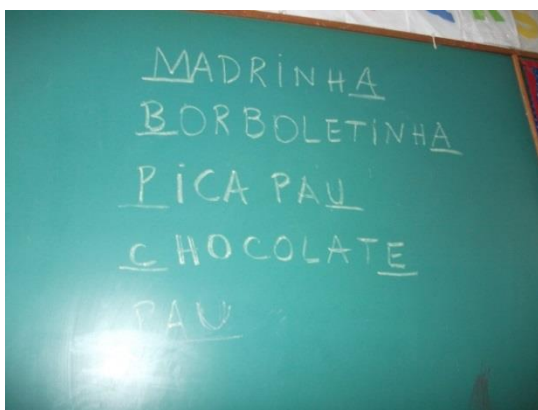 MADRINHA
BORBOLETINHA
PICA PAU
CHOCOLATE
PAU